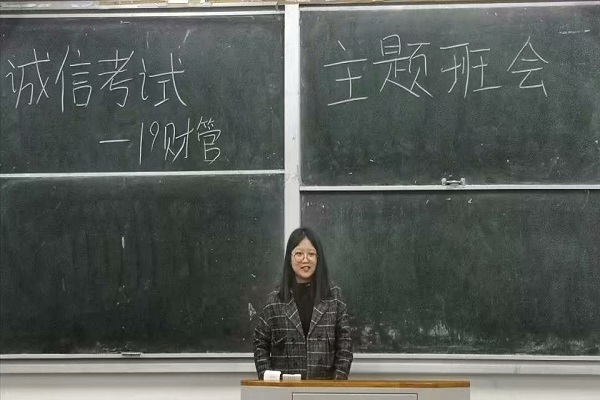 诚信考试
主题班会
一19财管